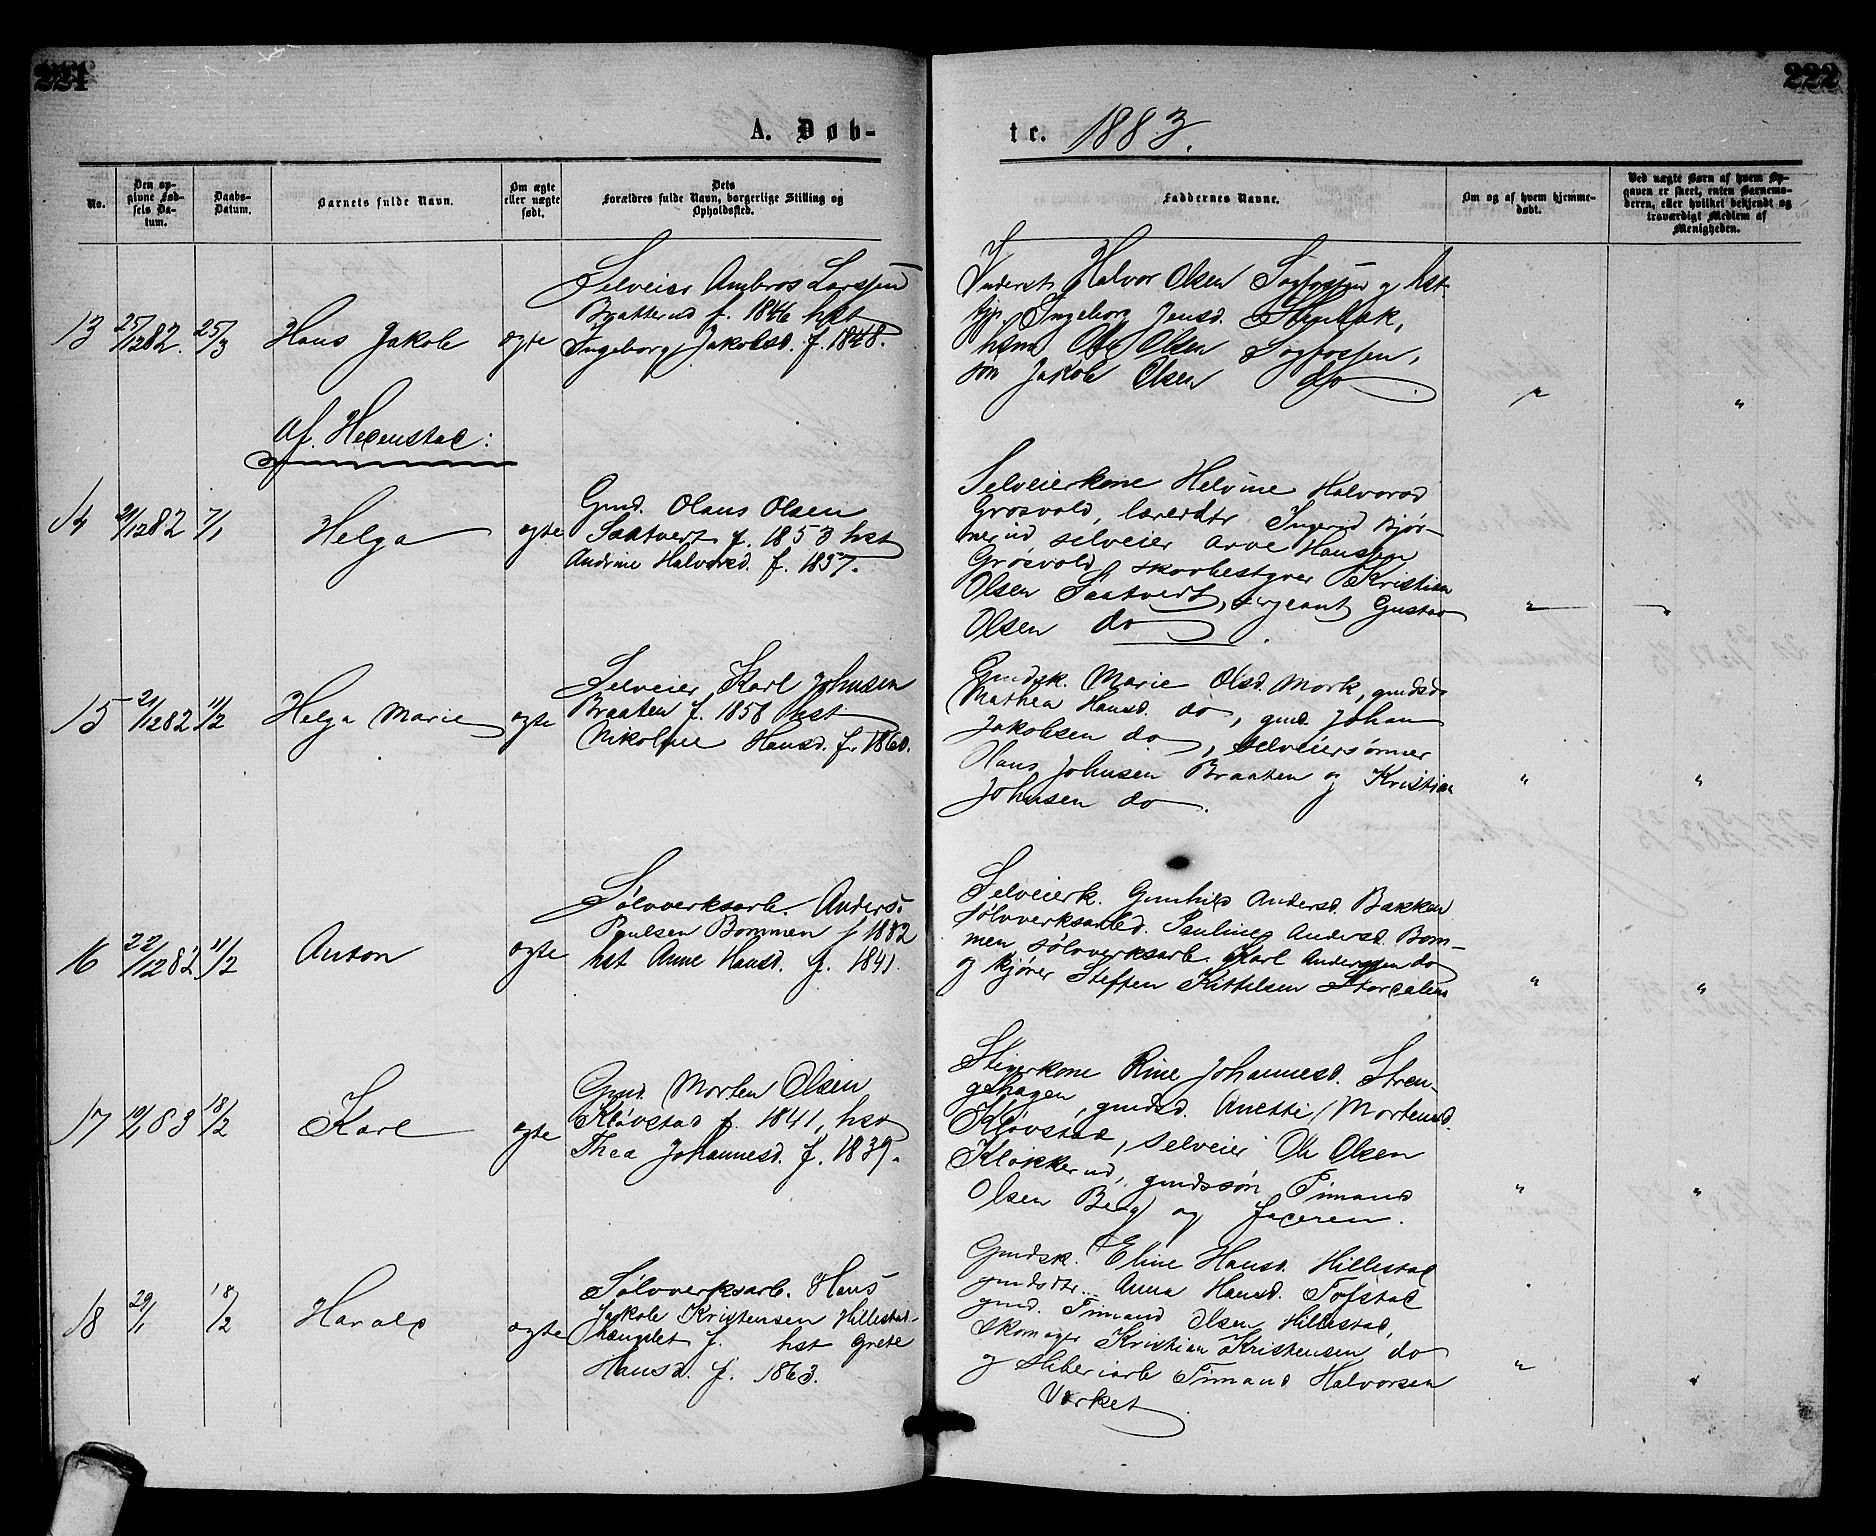 221
222
A. Døb-
te. 1883.
No.
Den opgivne Fødsels Datum.
Daabs-Datum.
Barnets fulde Navn.
Om ægte eller uægte født.
Dets Forældres fulde Navn, borgerlige Stilling og Opholdsted.
Faddernes Navne.
Om og af hvem hjemmedøbt.
Ved uægte Børn af hvem Opgaven er skeet, enten Barnemoderen, eller hvilket bekjendt og troværdigt Medlem af Menigheden.
13 25/1282. 25/3 Hans Jakob ægte
Selveier Ambros Larssen
Braatterud f. 1846 hst
Ingeborg Jakobsd. f. 1848.
Inderst Halvor Olsen Sagfossen og hst
Ingeborg Jensd.
Ole Olsen Sagfossen,
søn Jakob Olsen do
Af Hedenstad:
14 21/1282 7/1 Helga ægte
Gmd. Olaus Olsen
Saatvert f. 1853 hst
Andrine Halvorsd. f. 1857.
Selveierkone Helvine Halvorsd
Grøsvold, lærerdtr Ingerid Bjør-
nerud selveier Arve Hansen
Grøsvold, skovbestyrer Kristian
Olsen Saatvedt, sergeant Gustav
Olsen do
15 21/1282 11/2 Helga Marie ægte
Selveier Karl Johnsen
Braaten f. 1858 hst
Nikoline Hansd. f. 1860.
Gmdsk. Marie Olsd. Mork, gmdsd.
Mathea Hansd. do, gmd. Johan
Jakobsen do, selveiersønner
Hans Johnsen Braaten og Kristian
Johnsen do.
16 22/1282 11/2 Anton ægte
Sølvverksarb. Anders
Poulsen Bommen f 1832
hst Anne Hansd. f. 1841.
Selveierk. Gunhild Andersd. Bakken
sølvverksarbd. Pauline Andersd. Bom-
men, sølvverksarb. Karl Anderssen do
og kjører Steffen Kittelsen Stordalen
17 19/1 83 18/2 Karl ægte
Gmd. Morten Olsen
Kløvstad f. 1841, hst
Thea Johannesd. f. 1839.
Stigerkone Rine Johannesd. Stren-
gehagen, gmdsd. Anette Mortensd.
Kløvstad, selveier Ole Olsen
Klokkerud, gmdssøn Timand
Olsen Berg og faderen.
18 29/1 18/2 Harald ægte
Sølvverksarb. Hans
Jakob Kristensen Hillestad-
hængslet f. hst Grete
Hansd. f. 1863.
Gmdsk. Eline Hansd. Hillestad
gmdsdtr. Anna Hansd. Tofstad
gmd. Timand Olsen Hillestad,
skomager Kristian Kristensen do
og sliberiarb Timand Halvorsen
Værket